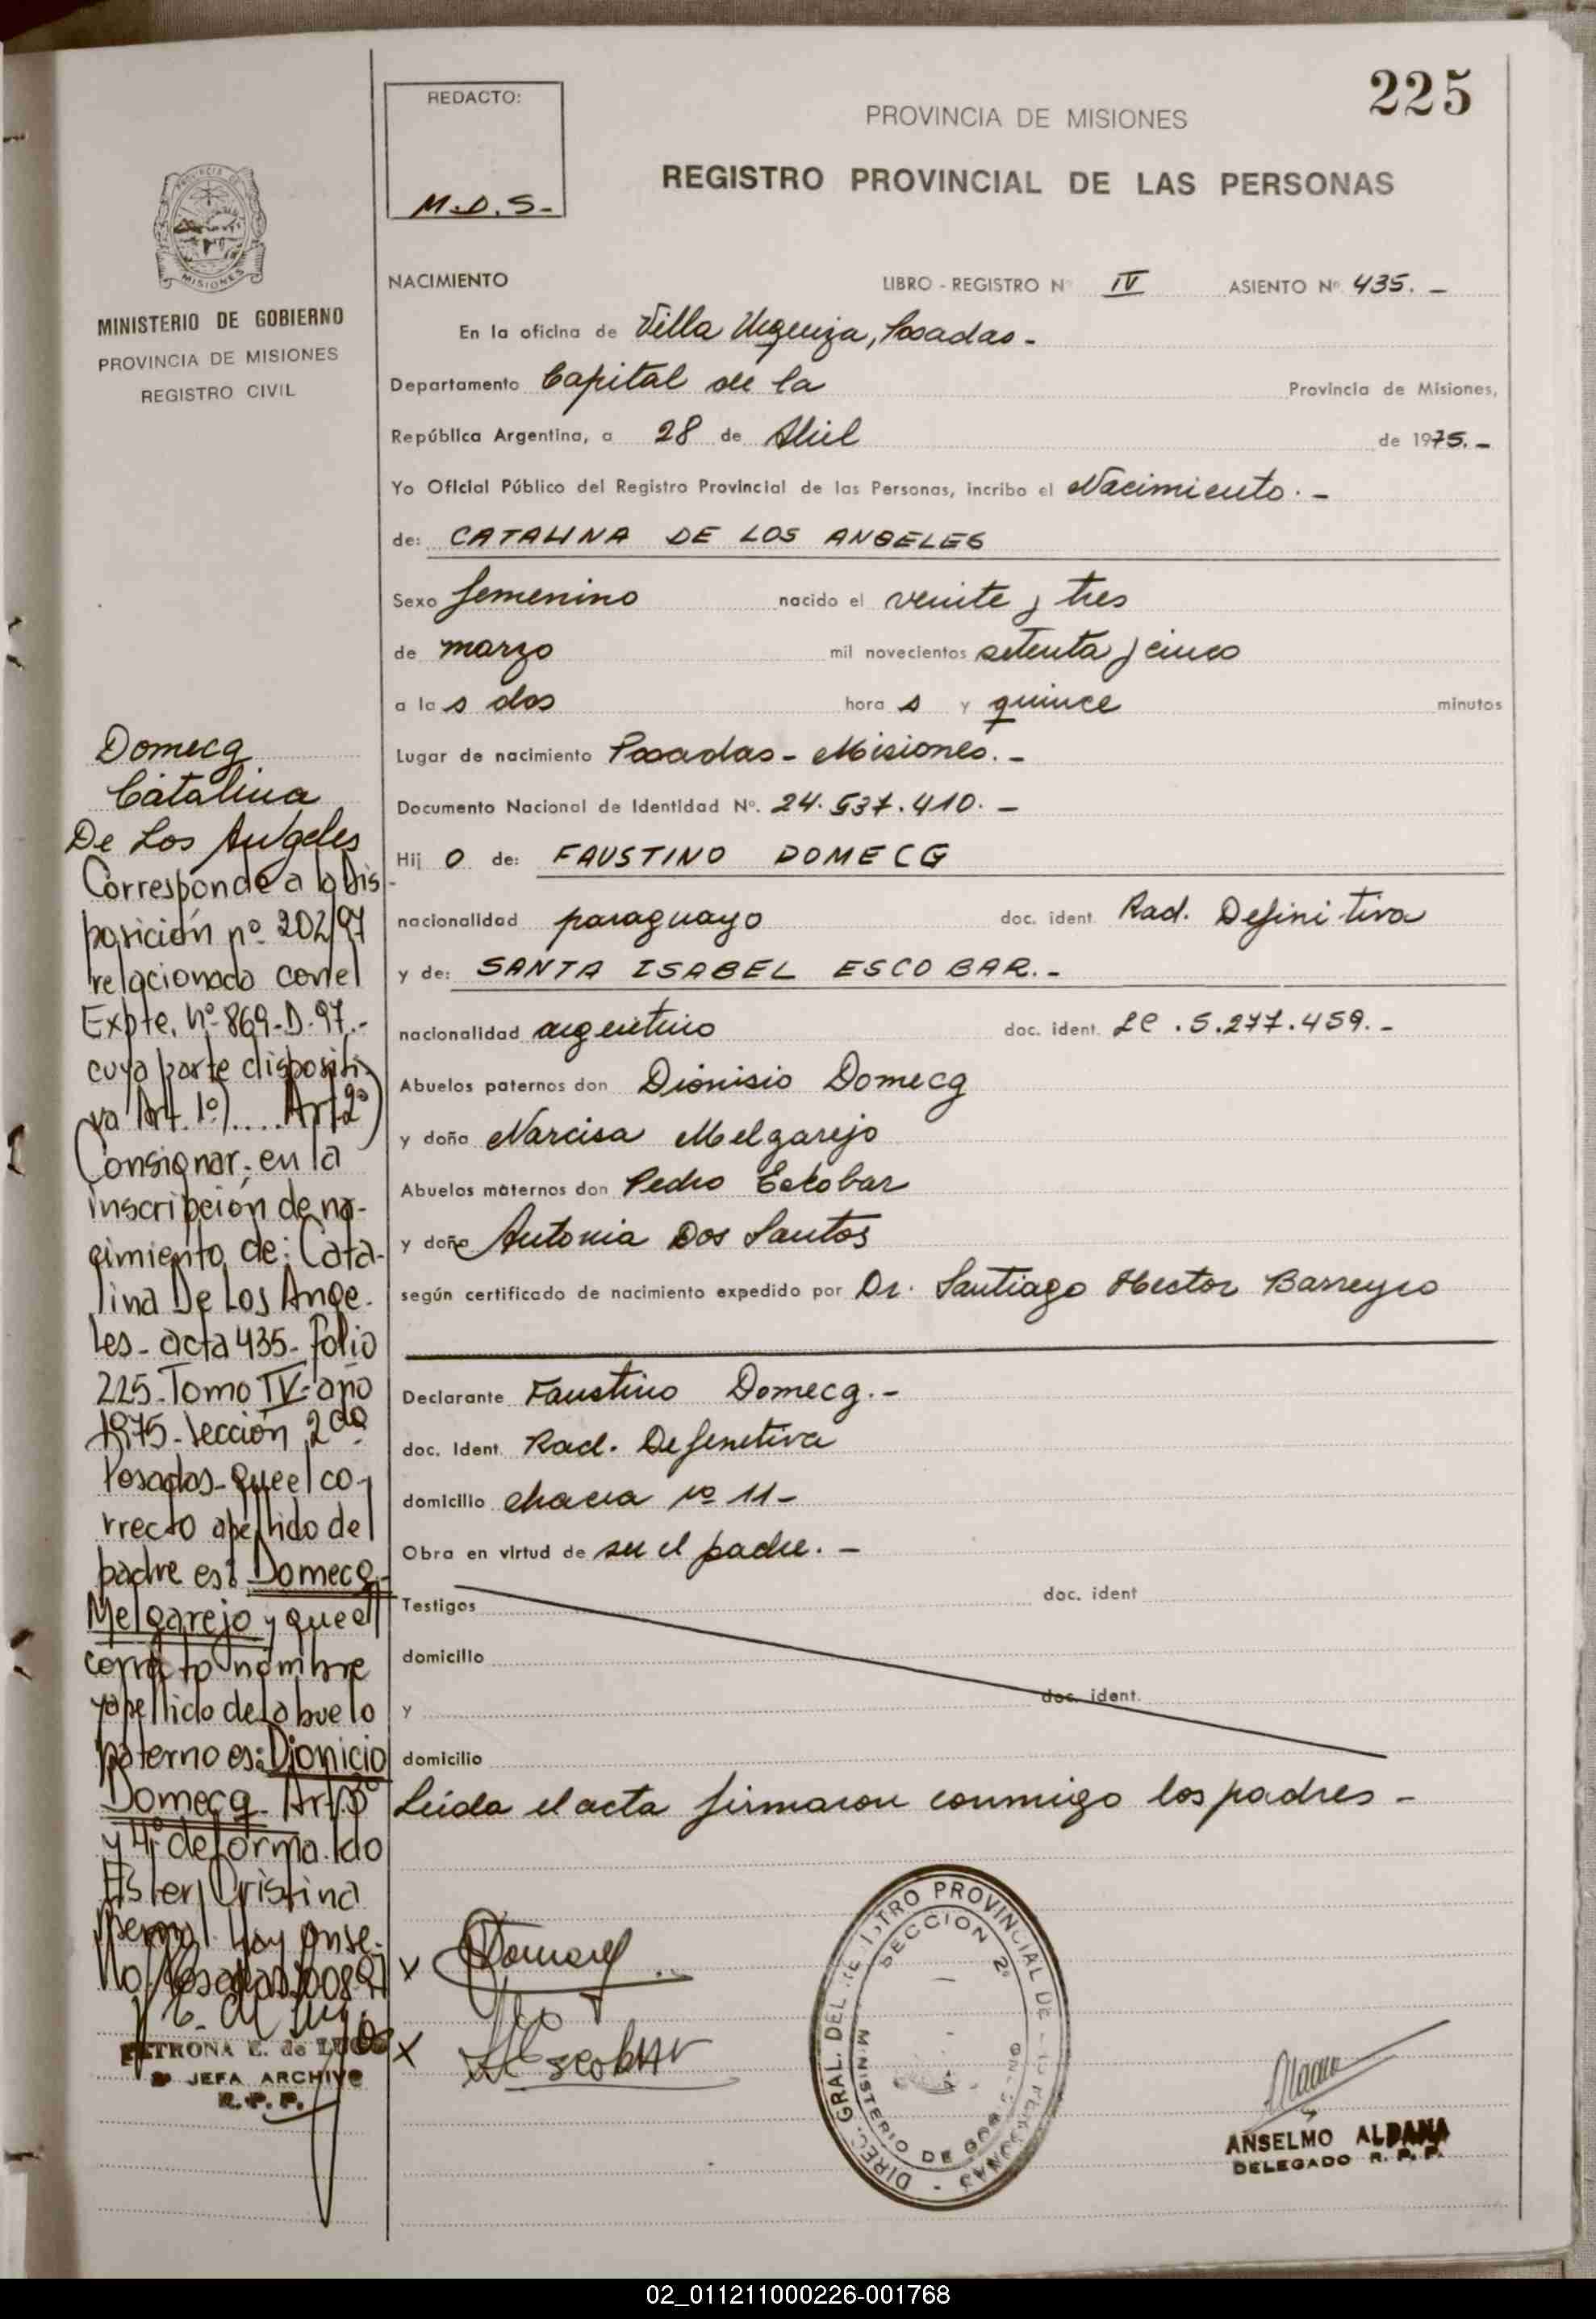 225
REDACTO:
M.D.S-
PROVINCIA DE MISIONES
REGISTRO PROVINCIAL DE LAS PERSONAS
PROVINCIA DE
MISIONES
MINISTERIO DE GOBIERNO
PROVINCIA DE MISIONES
REGISTRO CIVIL
NACIMIENTO LIBRO - REGISTRO Nº IV ASIENTO Nº 435. -
En la oficina de Villa Urquiza, Posadas -
Departamento Capital de la Provincia de Misiones,
República Argentina, a 28 de Abril de 1975. -
Yo Oficial Público del Registro Provincial de las Personas, incribo el Nacimiento. -
de: CATALINA DE LOS ANGELES
Sexo femenino nacido el veinte y tres
de marzo mil novecientos setenta y cinco
a la s dos hora s y quince minutos
Lugar de nacimiento Posadas - Misiones. -
Documento Nacional de Identidad Nº. 24.537.410. -
Hij o de: FAUSTINO DOMECG
nacionalidad paraguayo doc. ident. Rad. Definitiva
y de: SANTA ISABEL ESCOBAR. -
nacionalidad argentino doc. ident. LC . 5.277.459. -
Abuelos paternos don Dionisio Domecq
y doña Narcisa Melgarejo
Abuelos maternos don Pedro Escobar
y doña Antonia Dos Santos
según certificado de nacimiento expedido por Dr. Santiago Hector Barreyro
Declarante Faustino Domecq. -
doc. Ident. Rad. Definitiva
domicilio chacra nº 11 -
Obra en virtud de ser el padre. -
Testigos doc. ident
domicilio
y doc. ident.
domicilio
Leída el acta firmaron conmigo los padres -
Domecq
Catalina
De Los Angeles
Corresponde a la Dis-
posición nº 202/97
relacionado con el
Expte. Nº 869-D-97.-
cuya parte dispositi-
va Art. 1º) .... Art 2º)
Consignar, en la
inscripción de na-
cimiento de: Cata-
lina De Los Ange-
les - acta 435 - folio
225 - Tomo IV - año
1975 - Sección 2da
Posadas - que el co-
rrecto apellido del
padre es: Domecq
Melgarejo y que el
correcto nombre
y apellido del abuelo
paterno es: Dionicio
Domecq - Art 3º
y 4º de forma. Fdo
Ester Cristina
x
x Escobar
PETRONA E. de LUGO
JEFA ARCHIVO
R.P.P.
DIREC. GRAL. DEL REGISTRO PROVINCIAL DE LAS PERSONAS
SECCION 2ª
MINISTERIO DE GOBIERNO
ANSELMO ALDANA
DELEGADO R. P. P.
02_011211000226-001768